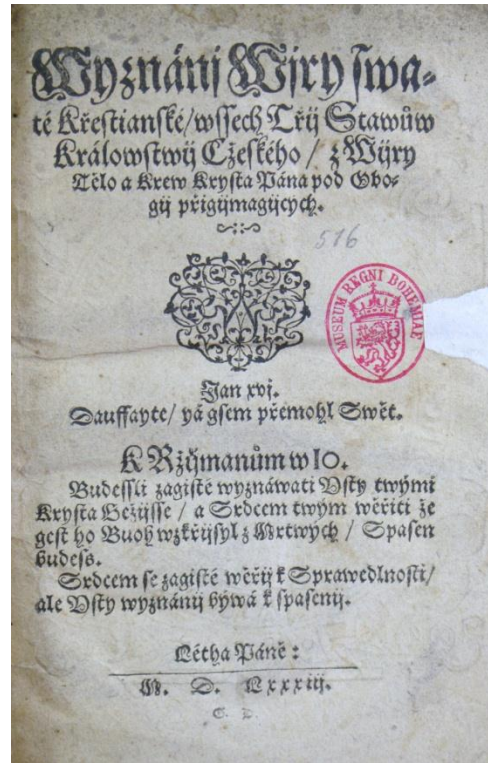 Wyznánj Wjry swa-
té Křestianské/wssech Třij Stawůw
Králowstwij Cžeského / z Wijry
Tělo a Krew Krysta Pána pod Obo-
gij přigijmagijcých.
516
MUSEUM REGNI BOHEMIAE
Jan xvj.
Dauffayte/ yá gsem přemohl Swět.
K Ržijmanům w 10.
Budessli zagisté wyznáwati Vsty twými
Krysta Gežijsse / a Srdcem twým wěřiti že
gest ho Buoh wzkřijsyl z Mrtwých / Spasen
budess.
Srdcem se zagisté wěřij k Sprawedlnosti/
ale Vsty wyznánij býwá k spasenij.
Létha Páně :
M. D. Lxxxiij.